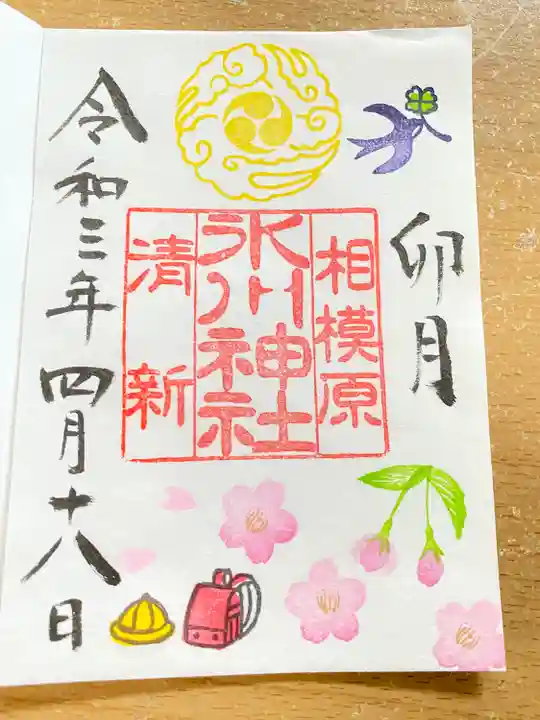 卯月
相模原
氷川神社
清新
令和三年四月十八日